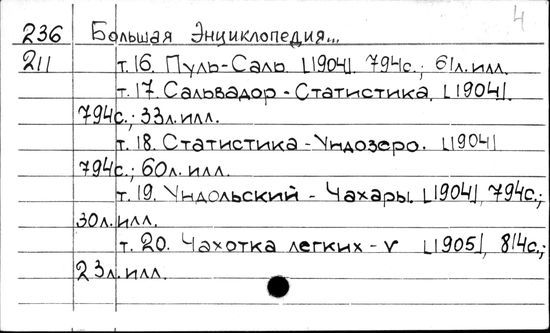 4
236 Большая Энциклопедия...
211 т.16. Пуль-Саль. [1904]. 794с.; 61л.илл.
т.17. Сальвадор-Статистика. [1904].
794с.; 33л.илл.
т.18. Статистика-Ундозеро. [1904]
794с.; 60л.илл.
т.19. Ундольский - Чахары. [1904], 794с.;
30л.илл.
т.20. Чахотка легких-v [1905], 814с.;
23л.илл.